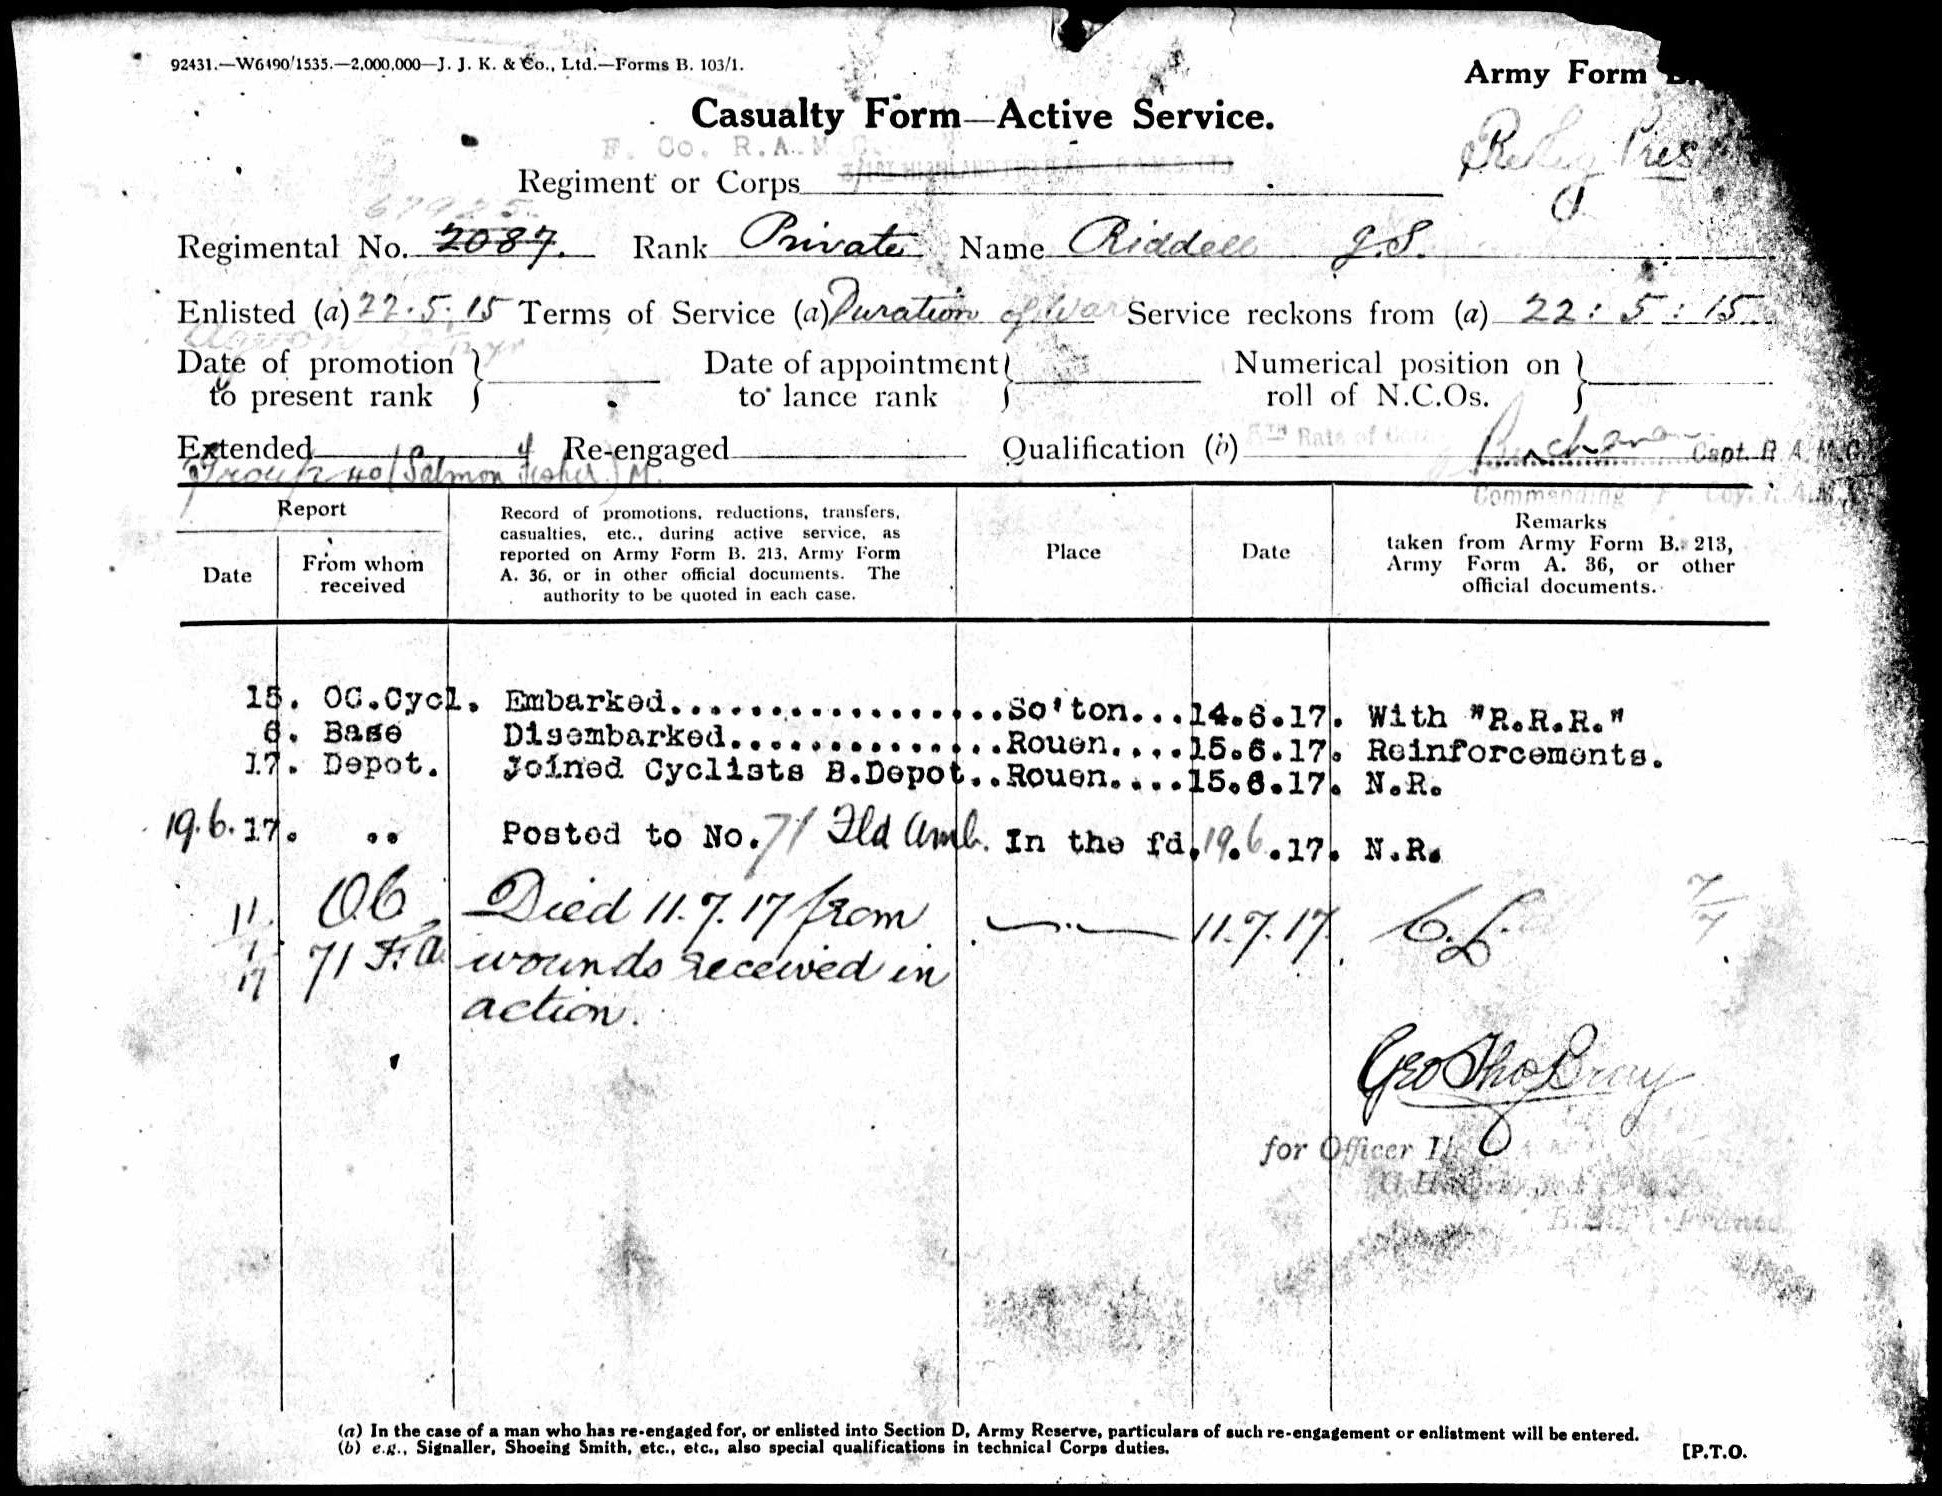 92431.—W6490/1535.—2,000,000—J. J. K. & Co., Ltd.—Forms B. 103/1.
Army Form B.
Casualty Form—Active Service.
Relig Pres
F. Co. R.A.M.C.
Regiment or Corps
67925.
Regimental No. 2087. Rank Private Name Riddell J.S.
Enlisted (a) 22.5.15 Terms of Service (a) Duration of War Service reckons from (a) 22:5:15
Date of promotion to present rank } Date of appointment to lance rank } Numerical position on roll of N.C.Os. }
Extended Re-engaged Qualification (b) 5TH Rate of Buchanan Capt. R.A.M.C.
Group 40 (Salmon Fisher) M. Commanding F Coy. R.A.M.C.
Report
Date
From whom received
Record of promotions, reductions, transfers,
casualties, etc., during active service, as
reported on Army Form B. 213, Army Form
A. 36, or in other official documents. The
authority to be quoted in each case.
Place
Date
Remarks
taken from Army Form B. 213,
Army Form A. 36, or other
official documents.
15. OC.Cycl. Embarked...................So'ton...14.6.17. With "R.R.R."
6. Base Disembarked..............Rouen....15.6.17. Reinforcements.
17. Depot. Joined Cyclists B.Depot..Rouen....15.6.17. N.R.
19.6.17. .. Posted to No. 71 Fld Amb. In the fd. 19.6.17. N.R.
11 OC Died 11.7.17 from 11.7.17.
71 F.A. wounds received in
17 action.
Geo Tho Bray
for Officer I/
France
(a) In the case of a man who has re-engaged for, or enlisted into Section D, Army Reserve, particulars of such re-engagement or enlistment will be entered.
(b) e.g., Signaller, Shoeing Smith, etc., etc., also special qualifications in technical Corps duties.
[P.T.O.